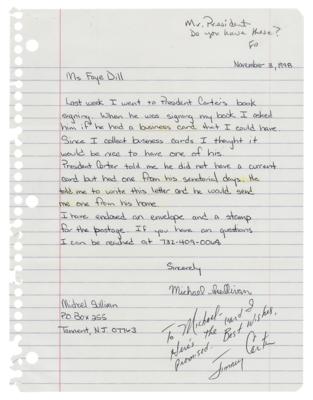 Mr. President
Do you have these?
FD
November 3, 1998
Ms Faye Dill
Last week I went to President Carter's book
signing. When he was signing my book I asked
him if he had a business card that I could have.
Since I collect business cards I thought it
would be nice to have one of his.
President Carter told me he did not have a current
card but had one from his senatorial days. He
told me to write this letter and he would send
me one from his home.
I have enclosed an envelope and a stamp
for the postage. If you have an questions
I can be reached at 732-409-0064
Sincerely
Michael Sullivan
Michael Sullivan
PO Box 255
Tennent, N.J. 07763
To Michael-
Here's the card I
promised. Best Wishes,
Jimmy Carter